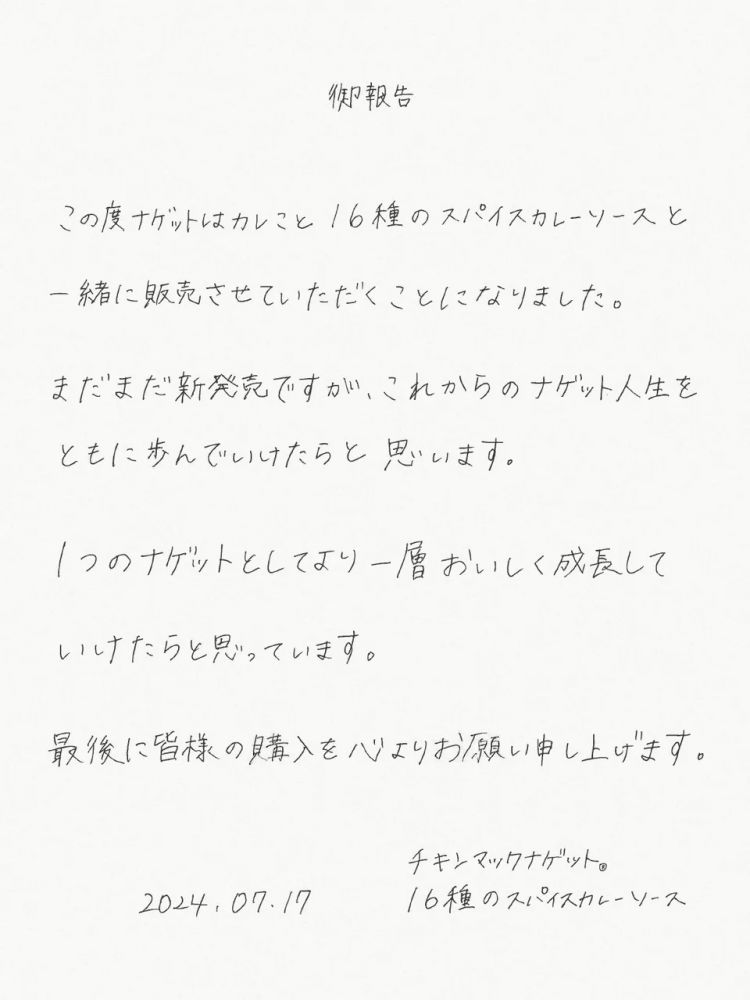 御報告
この度ナゲットはカレこと16種のスパイスカレーソースと
一緒に販売させていただくことになりました。
まだまだ新発売ですが、これからのナゲット人生を
ともに歩んでいけたらと思います。
1つのナゲットとしてより一層おいしく成長して
いけたらと思っています。
最後に皆様の購入を心よりお願い申し上げます。
チキンマックナゲット®
2024.07.17 16種のスパイスカレーソース